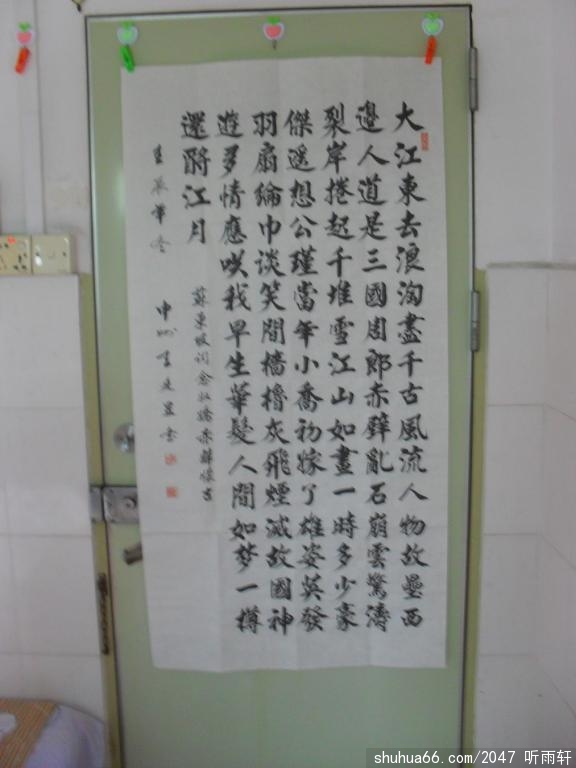 大江東去浪淘盡千古風流人物故壘西
邊人道是三國周郎赤薜亂石崩雲驚濤
裂岸捲起千堆雪江山如畫一時多少豪
傑遥想公瑾當年小喬初嫁了雄姿英發
羽扇綸巾谈笑間檣櫓灰飛煙滅故國神
遊多情應咲我早生華髮人間如梦一樽
還酹江月
蘇東坡词念奴嬌赤薜懷古
壬辰 冬
中州
shuhua66.com/2047 听雨轩